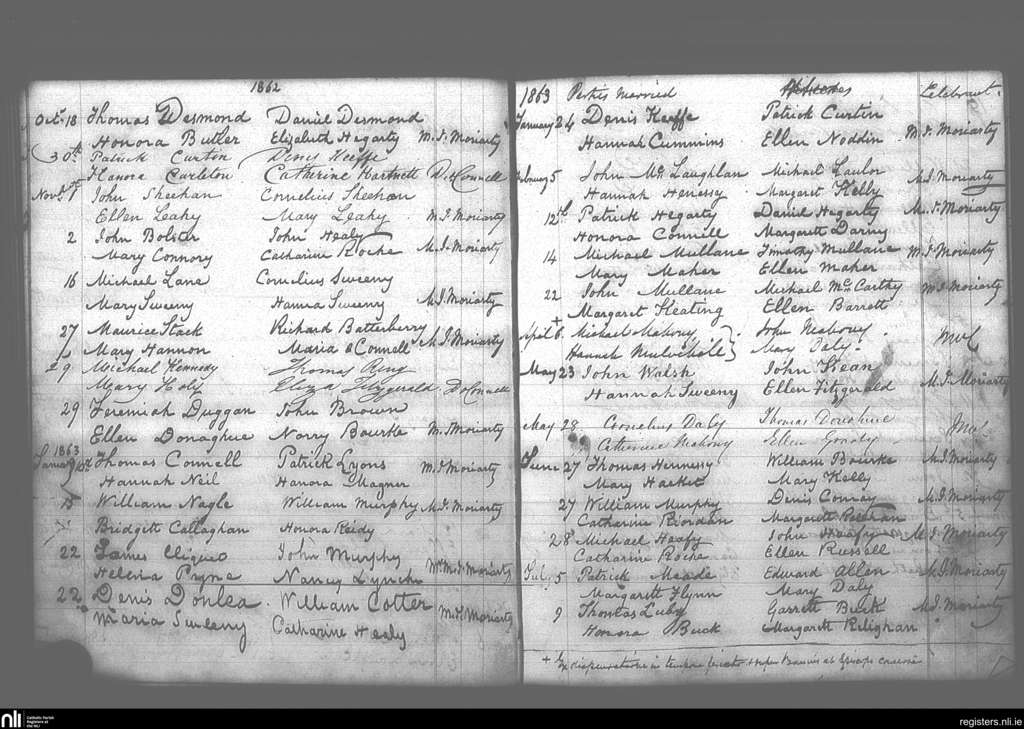 1862
Octr 18 Thomas Desmond Daniel Desmond
Honora Butler Elizabeth Hegarty M.J. Moriarty
30th Patrick Curtin Denis Keeffe
Hanora Carleton Catherine Hartnett D. O'Connell
Novr 1st John Sheehan Cornelius Sheehan
Ellen Leahy Mary Leahy M.J. Moriarty
2 John Bolster John Healy
Mary Connory Catharine Roche M.J. Moriarty
16 Michael Lane Cornelius Sweeny
Mary Sweeny Hanna Sweeny M.J. Moriarty
27 Maurice Stack Richard Batterberry
Mary Hannon Maria O'Connell M.J. Moriarty
29 Michael Kennedy Thomas Ring
Mary Eliza Fitzgerald D. O'Connell
29 Jeremiah Duggan John Brown
Ellen Donaghue Norry Bourke M.J. Moriarty
1863
January Thomas Connell Patrick Lyons M.J. Moriarty
Hannah Neil Hanora Magner
15 William Nagle William Murphy M.J. Moriarty
Bridgett Callaghan Honora Reidy
22 James John Murphy
Helena Pyne Nancy Lynch M.J. Moriarty
22 Denis Donlea William Cotter
Maria Sweeny Catharine Healy M.J. Moriarty
1863 Parties Married Celebrant
January 24 Denis Keeffe Patrick Curtin
Hannah Cummins Ellen Noddin M.J. Moriarty
February 5 John McLaughlan Michael Lawlor
Hannah Henessy Margaret Kelly M.J. Moriarty
12th Patrick Hegarty Daniel Hegarty M.J. Moriarty
Honora Connell Margarett Darny
14 Michael Mullane Timothy Mullane M.J. Moriarty
Mary Maher Ellen Maher
22 John Mullane Michael McCarthy M.J. Moriarty
Margaret Keating Ellen Barrett
+
April 6 Michael Mahony John Mahony
Hannah Mulvehile Mary Daly
May 23 John Walsh John Kean
Hannah Sweeny Ellen Fitzgerald M.J. Moriarty
May 28 Cornelius Daly Thomas Donoghue
Catherine Mahony Ellen Goody
June 27 Thomas Hennessy William Bourke M.J. Moriarty
Mary Hacket Mary Kelly
27 William Murphy Denis Conray M.J. Moriarty
Catharine Riordan Margarett
28 Michael Heafy John Heafy M.J. Moriarty
Catharine Roche Ellen Russell
July 5 Patrick Meade Edward Allen M.J. Moriarty
Margarett Flynn Mary Daly
9 Thomas Luby Garrett Buck M.J. Moriarty
Honora Buck Margarett Relighan
+ Ex dispensatione in tempore
nli Catholic Parish Registers at the NLI
registers.nli.ie